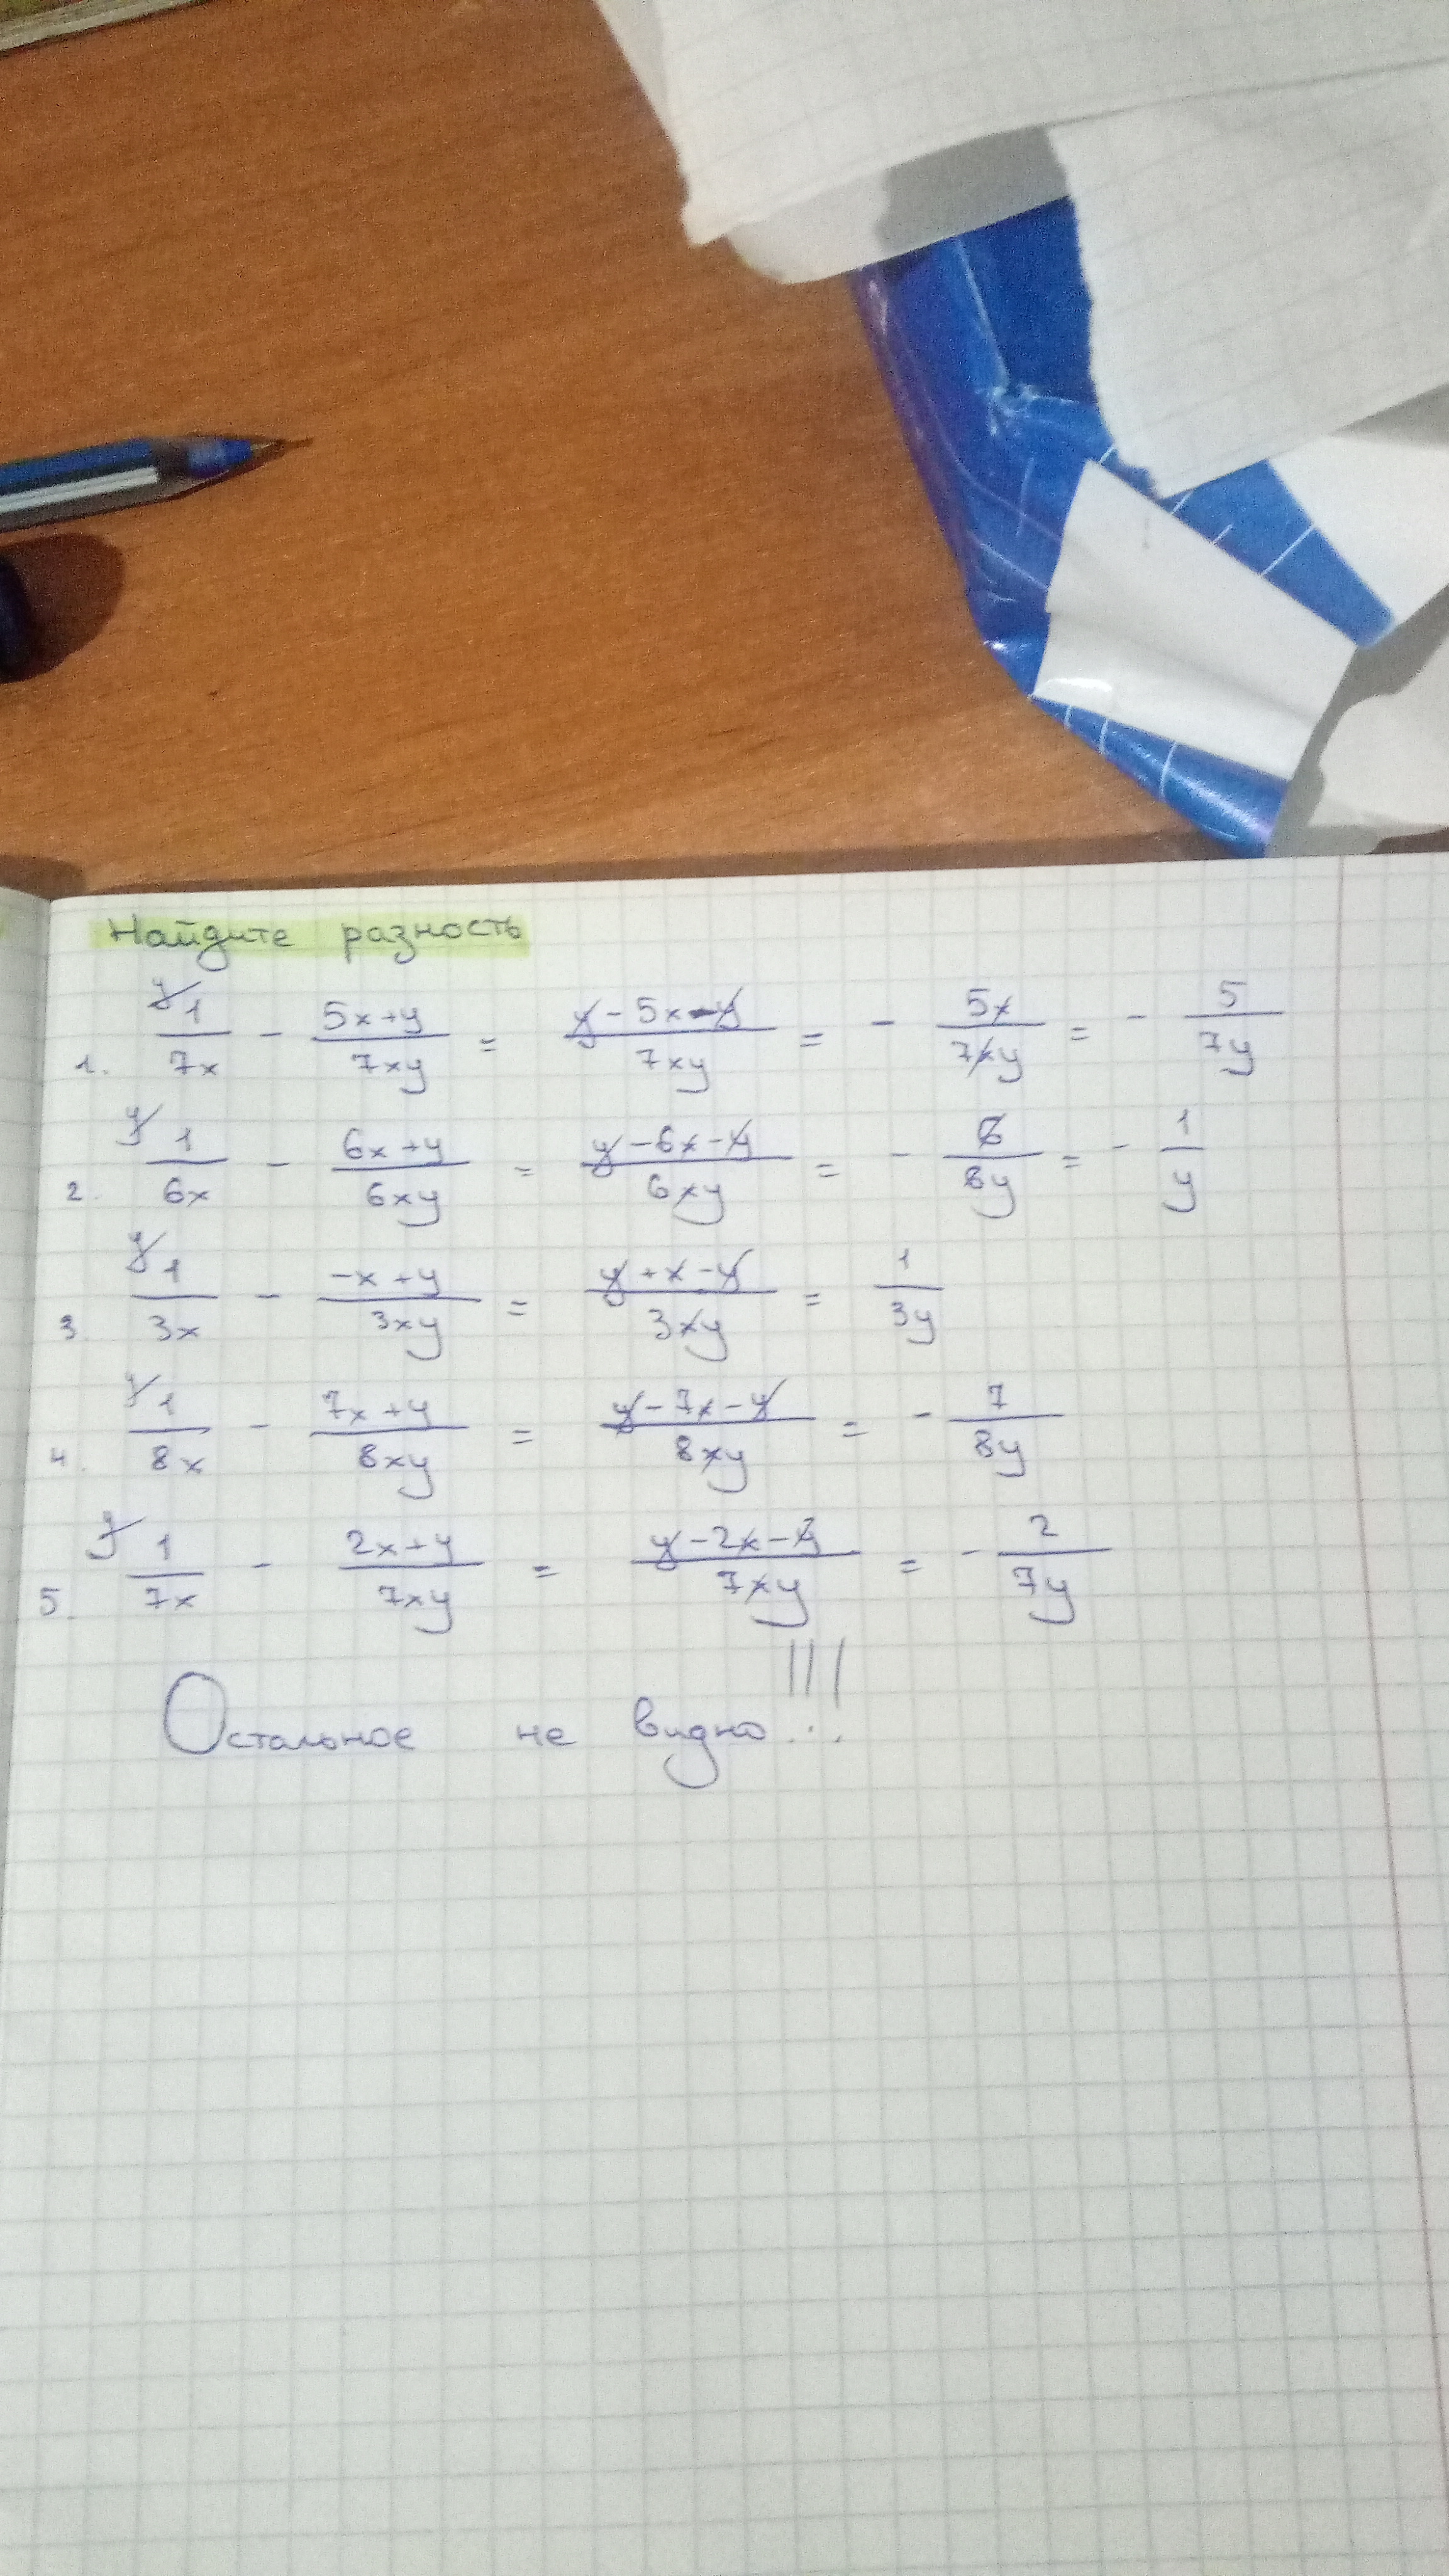 Найдите разность
1. y/ 1/7x - (5x+y)/7xy = (y-5x-y)/7xy = - 5x/7xy = - 5/7y
2. y/ 1/6x - (6x+y)/6xy = (y-6x-y)/6xy = - 6/6y = - 1/y
3. y/ 1/3x - (-x+y)/3xy = (y+x-y)/3xy = 1/3y
4. y/ 1/8x - (7x+y)/8xy = (y-7x-y)/8xy = - 7/8y
5. y/ 1/7x - (2x+y)/7xy = (y-2x-y)/7xy = - 2/7y
Остальное не видно!!!